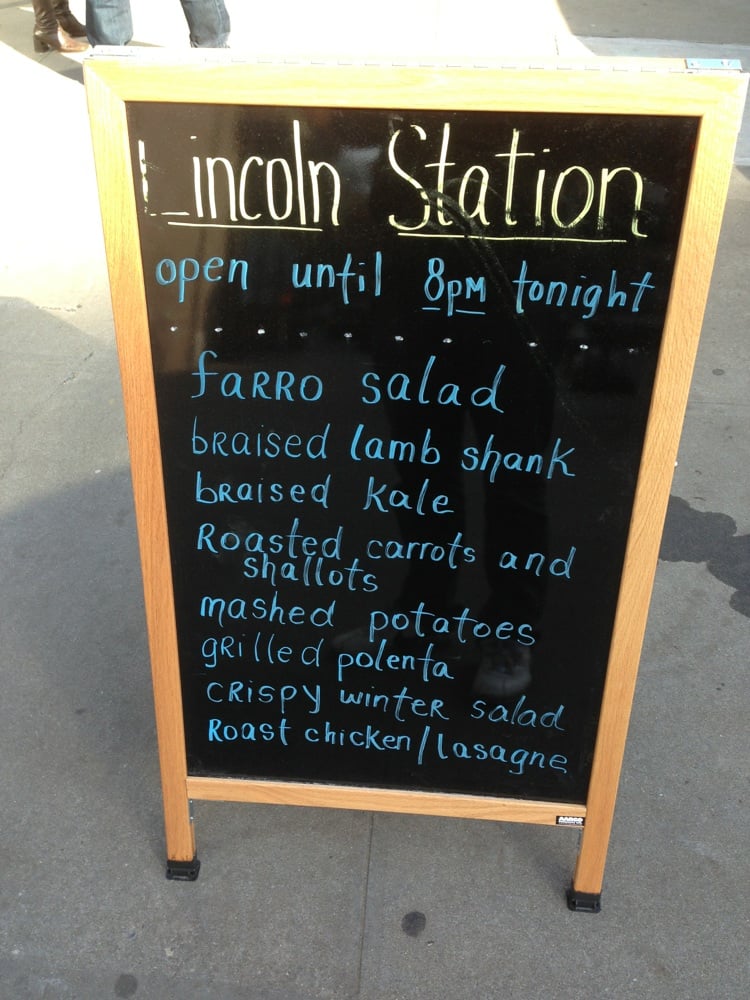 Lincoln Station
open until 8pm tonight
faRRO salad
bRaised lamb shank
bRaised kale
Roasted carrots and
shallots
mashed potatoes
gRilled polenta
CRispy winteR salad
Roast chicken/lasagne
AARCO